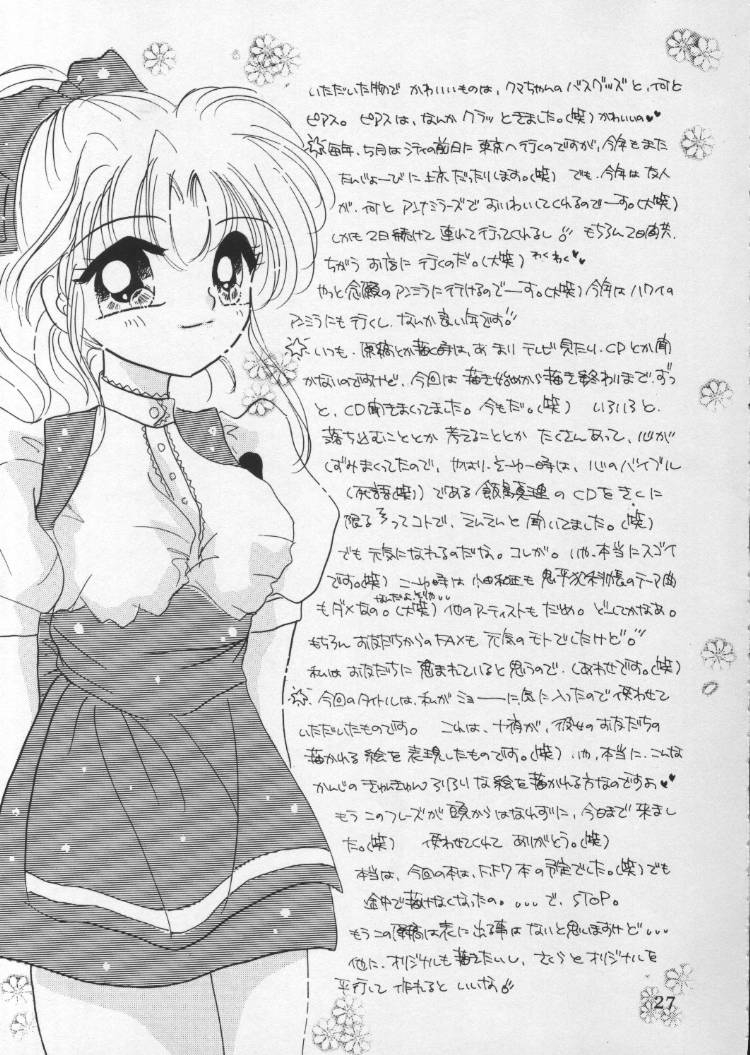 いただいた物で かわいいものは、クマちゃんのバスグッズと、何と
ピアス。ピアスは、なんかグラッときました。(笑) かわいいの♥♥
☆毎年、5月はシティの前日に東京へ行くのですが、今年もまた
たんじょーびに上京だったりします。(笑) でも、今年は友人
が、何とアンナミラーズでおいわいしてくれるので──す。(大笑)
しかも2日続けて連れて行ってくれるし!! もちろん2日間共、
ちがうお店に行くのだ。(大笑) わくわく♥♥
やっと念願のアンミラに行けるので──す。(大笑) 今年はハワイの
アンミラにも行くし、なんか良い年です!!
☆いつも、原稿とか描く時は、あまりテレビ見たり、CDとか聞
かないのですけど、今回は描き始めから描き終わりまで、ずっ
と、CD聞きまくってました。今もだ。(笑) いろいろと、
落ち込むこととか 考えることとか たくさんあって、心が
しずみまくってたので、やはり、そーゆー時は、心のバイブル
(死語(笑)) である 飯島真理のCDをきくに
限る ってコトで、えんえんと聞いてました。(笑)
でも元気になれるのだな。コレが。いや、本当にスゴイ
です。(笑) こーゆー時は 小田和正も 鬼平犯科帳のテーマ曲
もダメなの。(大笑) 他のアーティストもだめ。どーしてかなぁ。
もちろん お友だちからのFAXも 元気のモトでしたけど。
私はお友だちに恵まれていると思うので、しあわせです。(笑)
☆今回のタイトルは、私がミョーーに気に入ったので使わせて
いただいたものです。 これは、 が、彼女のお友だちの
描かれる絵を表現したものです。(笑) いや、本当に、こんな
かんじの きゅんきゅん ふりふり な絵を描かれる方なのですよ♥♥
もう このフレーズが 頭からはなれずに、今日まで 来まし
た。(笑) 使わせてくれて ありがとう。(笑)
本当は、今回の本は、FF7本の予定でした。(笑) でも
途中で描けなくなったの。。。。で、STOP。
もうこの原稿は表に出る事は ないと思いますけど。。。
他に、オリジナルも描きたいし、さくらとオリジナルを
平行して 作れると いいな!!
27